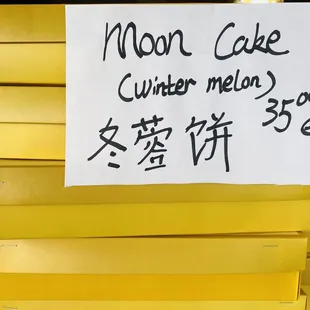 Moon Cake
(Winter melon)
35
冬蓉饼